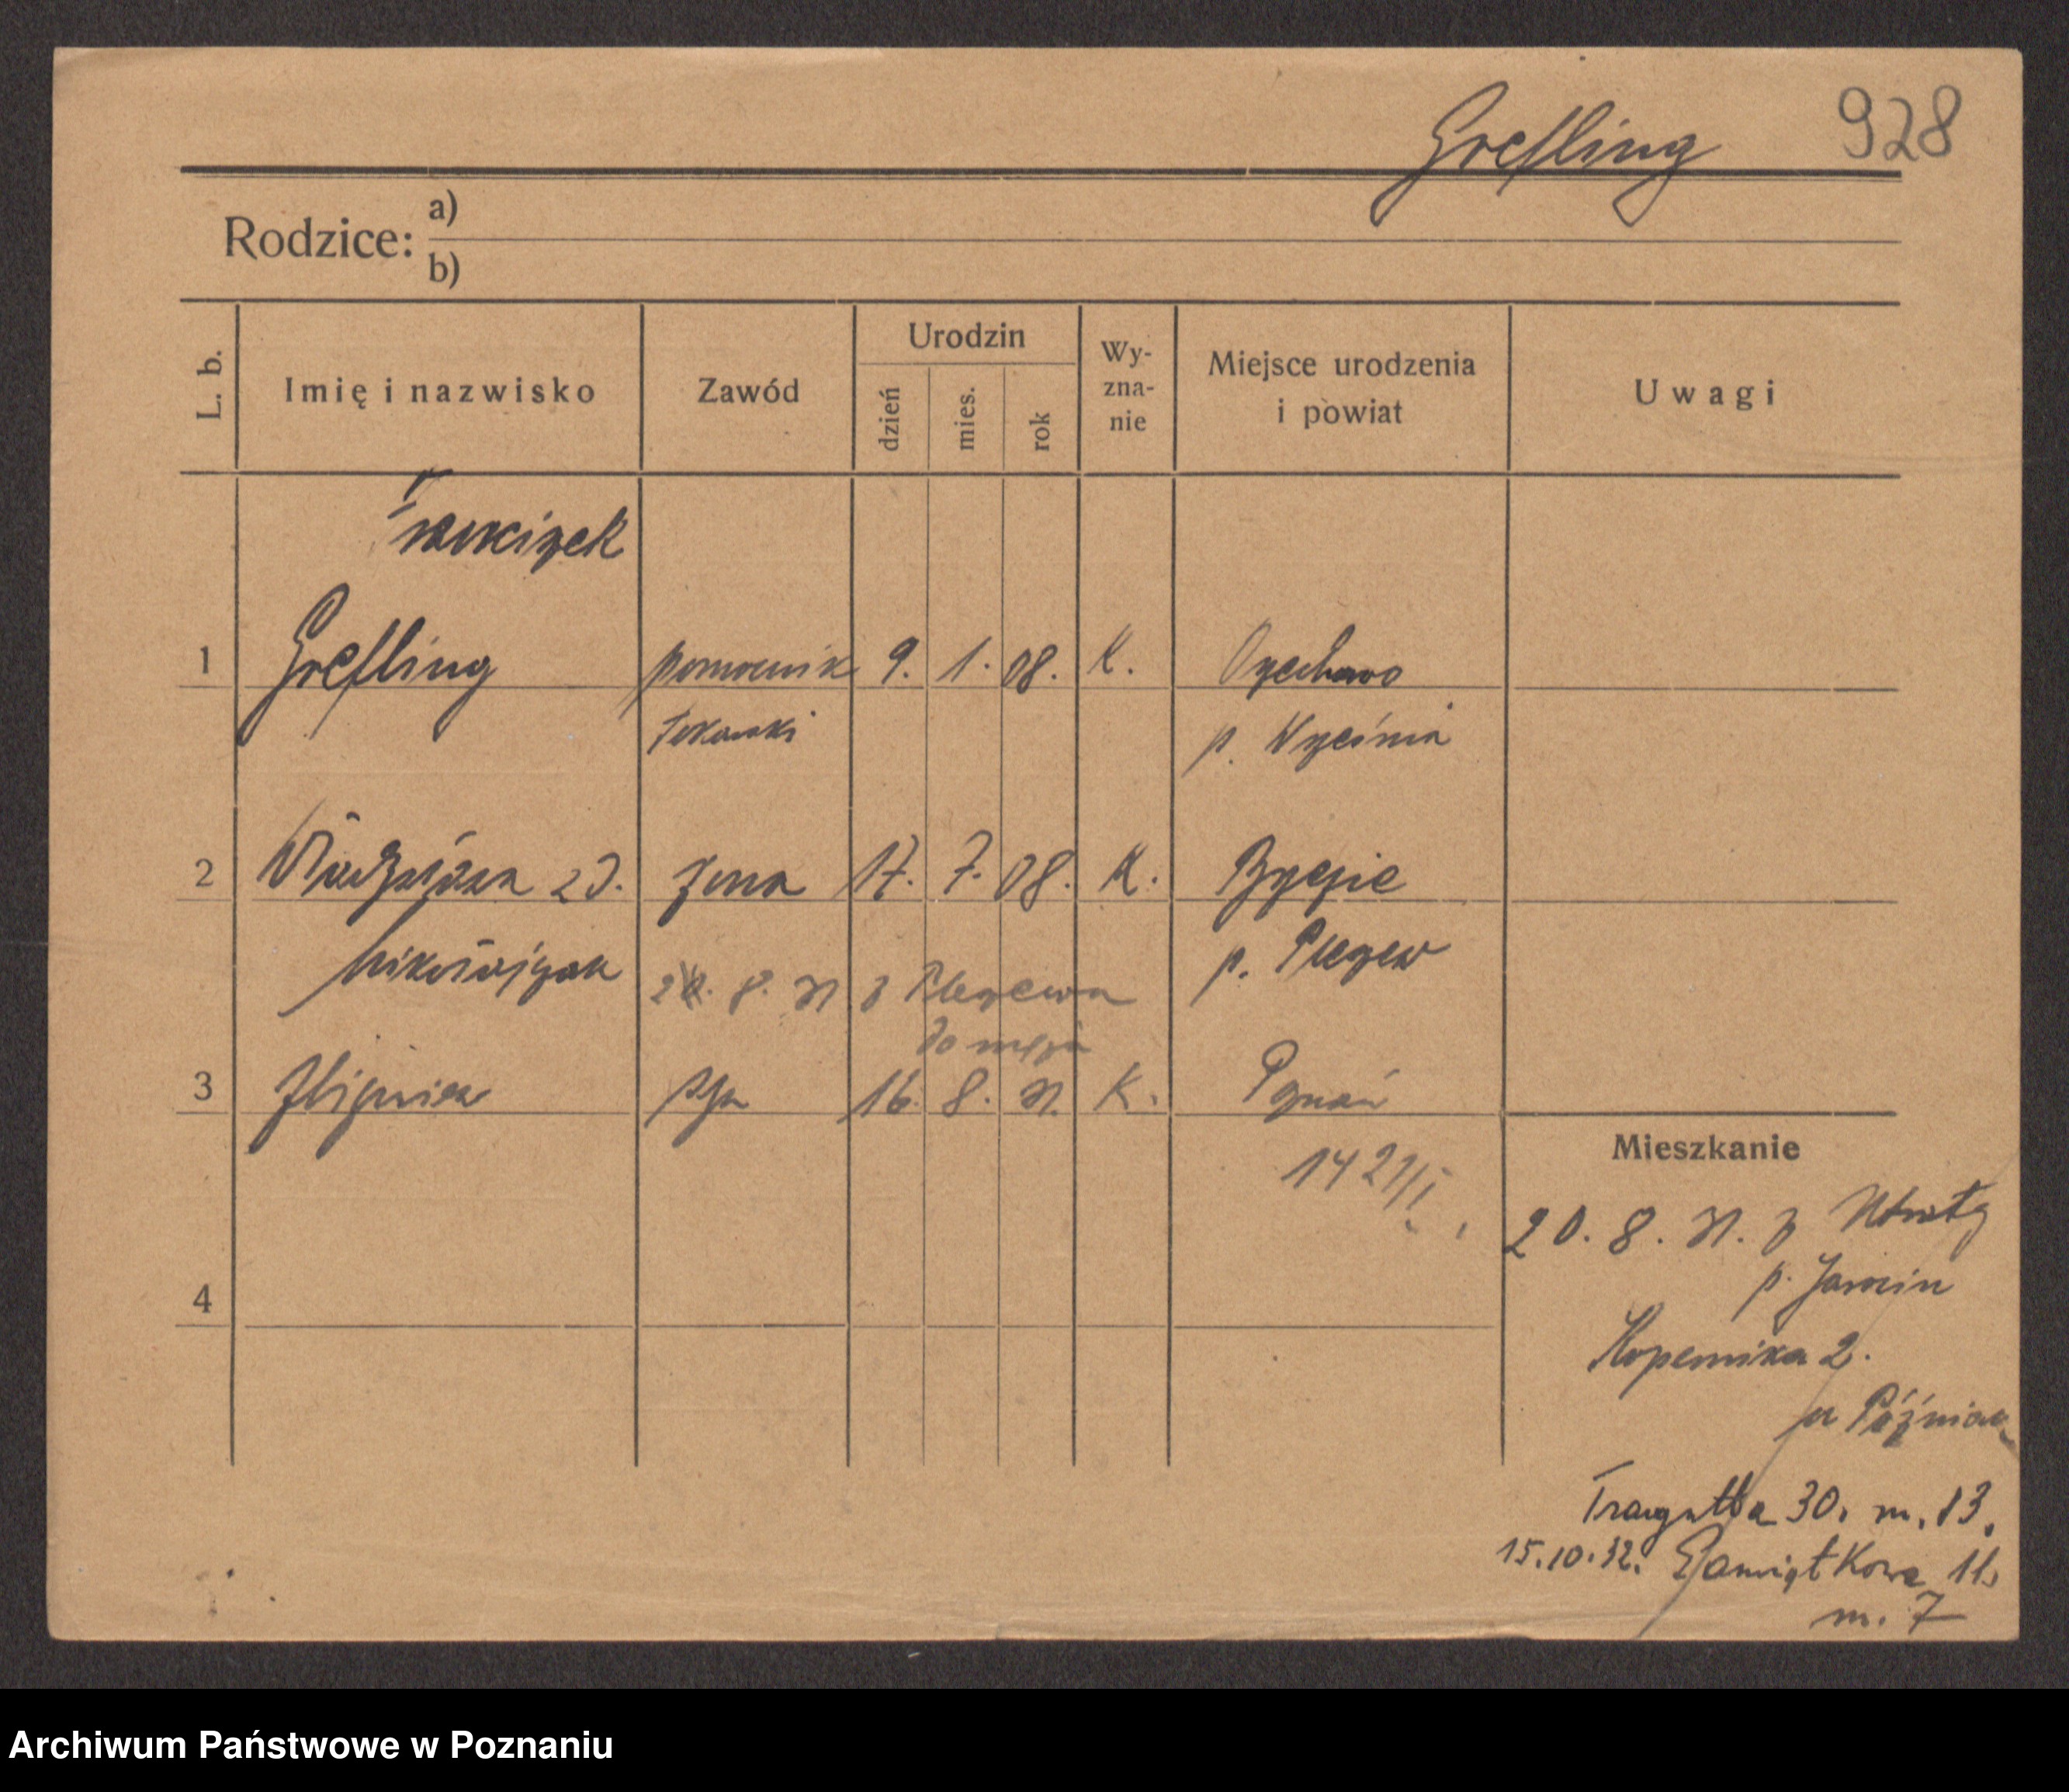 Grefling 928
Rodzice: a)
b)
L. b.
Imię i nazwisko
Zawód
Urodzin
dzień
mies.
rok
Wy-
zna-
nie
Miejsce urodzenia
i powiat
Uwagi
Franciszek
1 Grefling pomocnik 9. 1. 08. K. Orzechowo
p. Września
2 Władysława zd. żona 17. 7. 08. K.
Mikołajczak p. Pleszew
8. 31 z Pleszewa
do męża
3 Zbigniew syn 16. 8. 31. K. Poznań
1421/I
4
Mieszkanie
20. 8. 31. z Utraty
p. Jarocin
Kopernika 2.
u Poźniak
Traugutta 30. m. 13.
15.10.32. Pamiątkowa 11.
m. 7
Archiwum Państwowe w Poznaniu